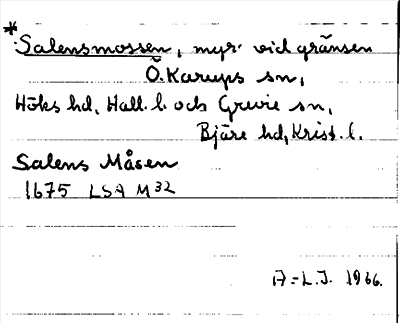 * Salensmossen, myr vid gränsen
Ö. Karups sn,
Höks hd, Hall. l. och Grevie sn,
Bjäre hd, Krist. l.
Salens Måsen
1675 LSA M 32
A-L.J. 1966.